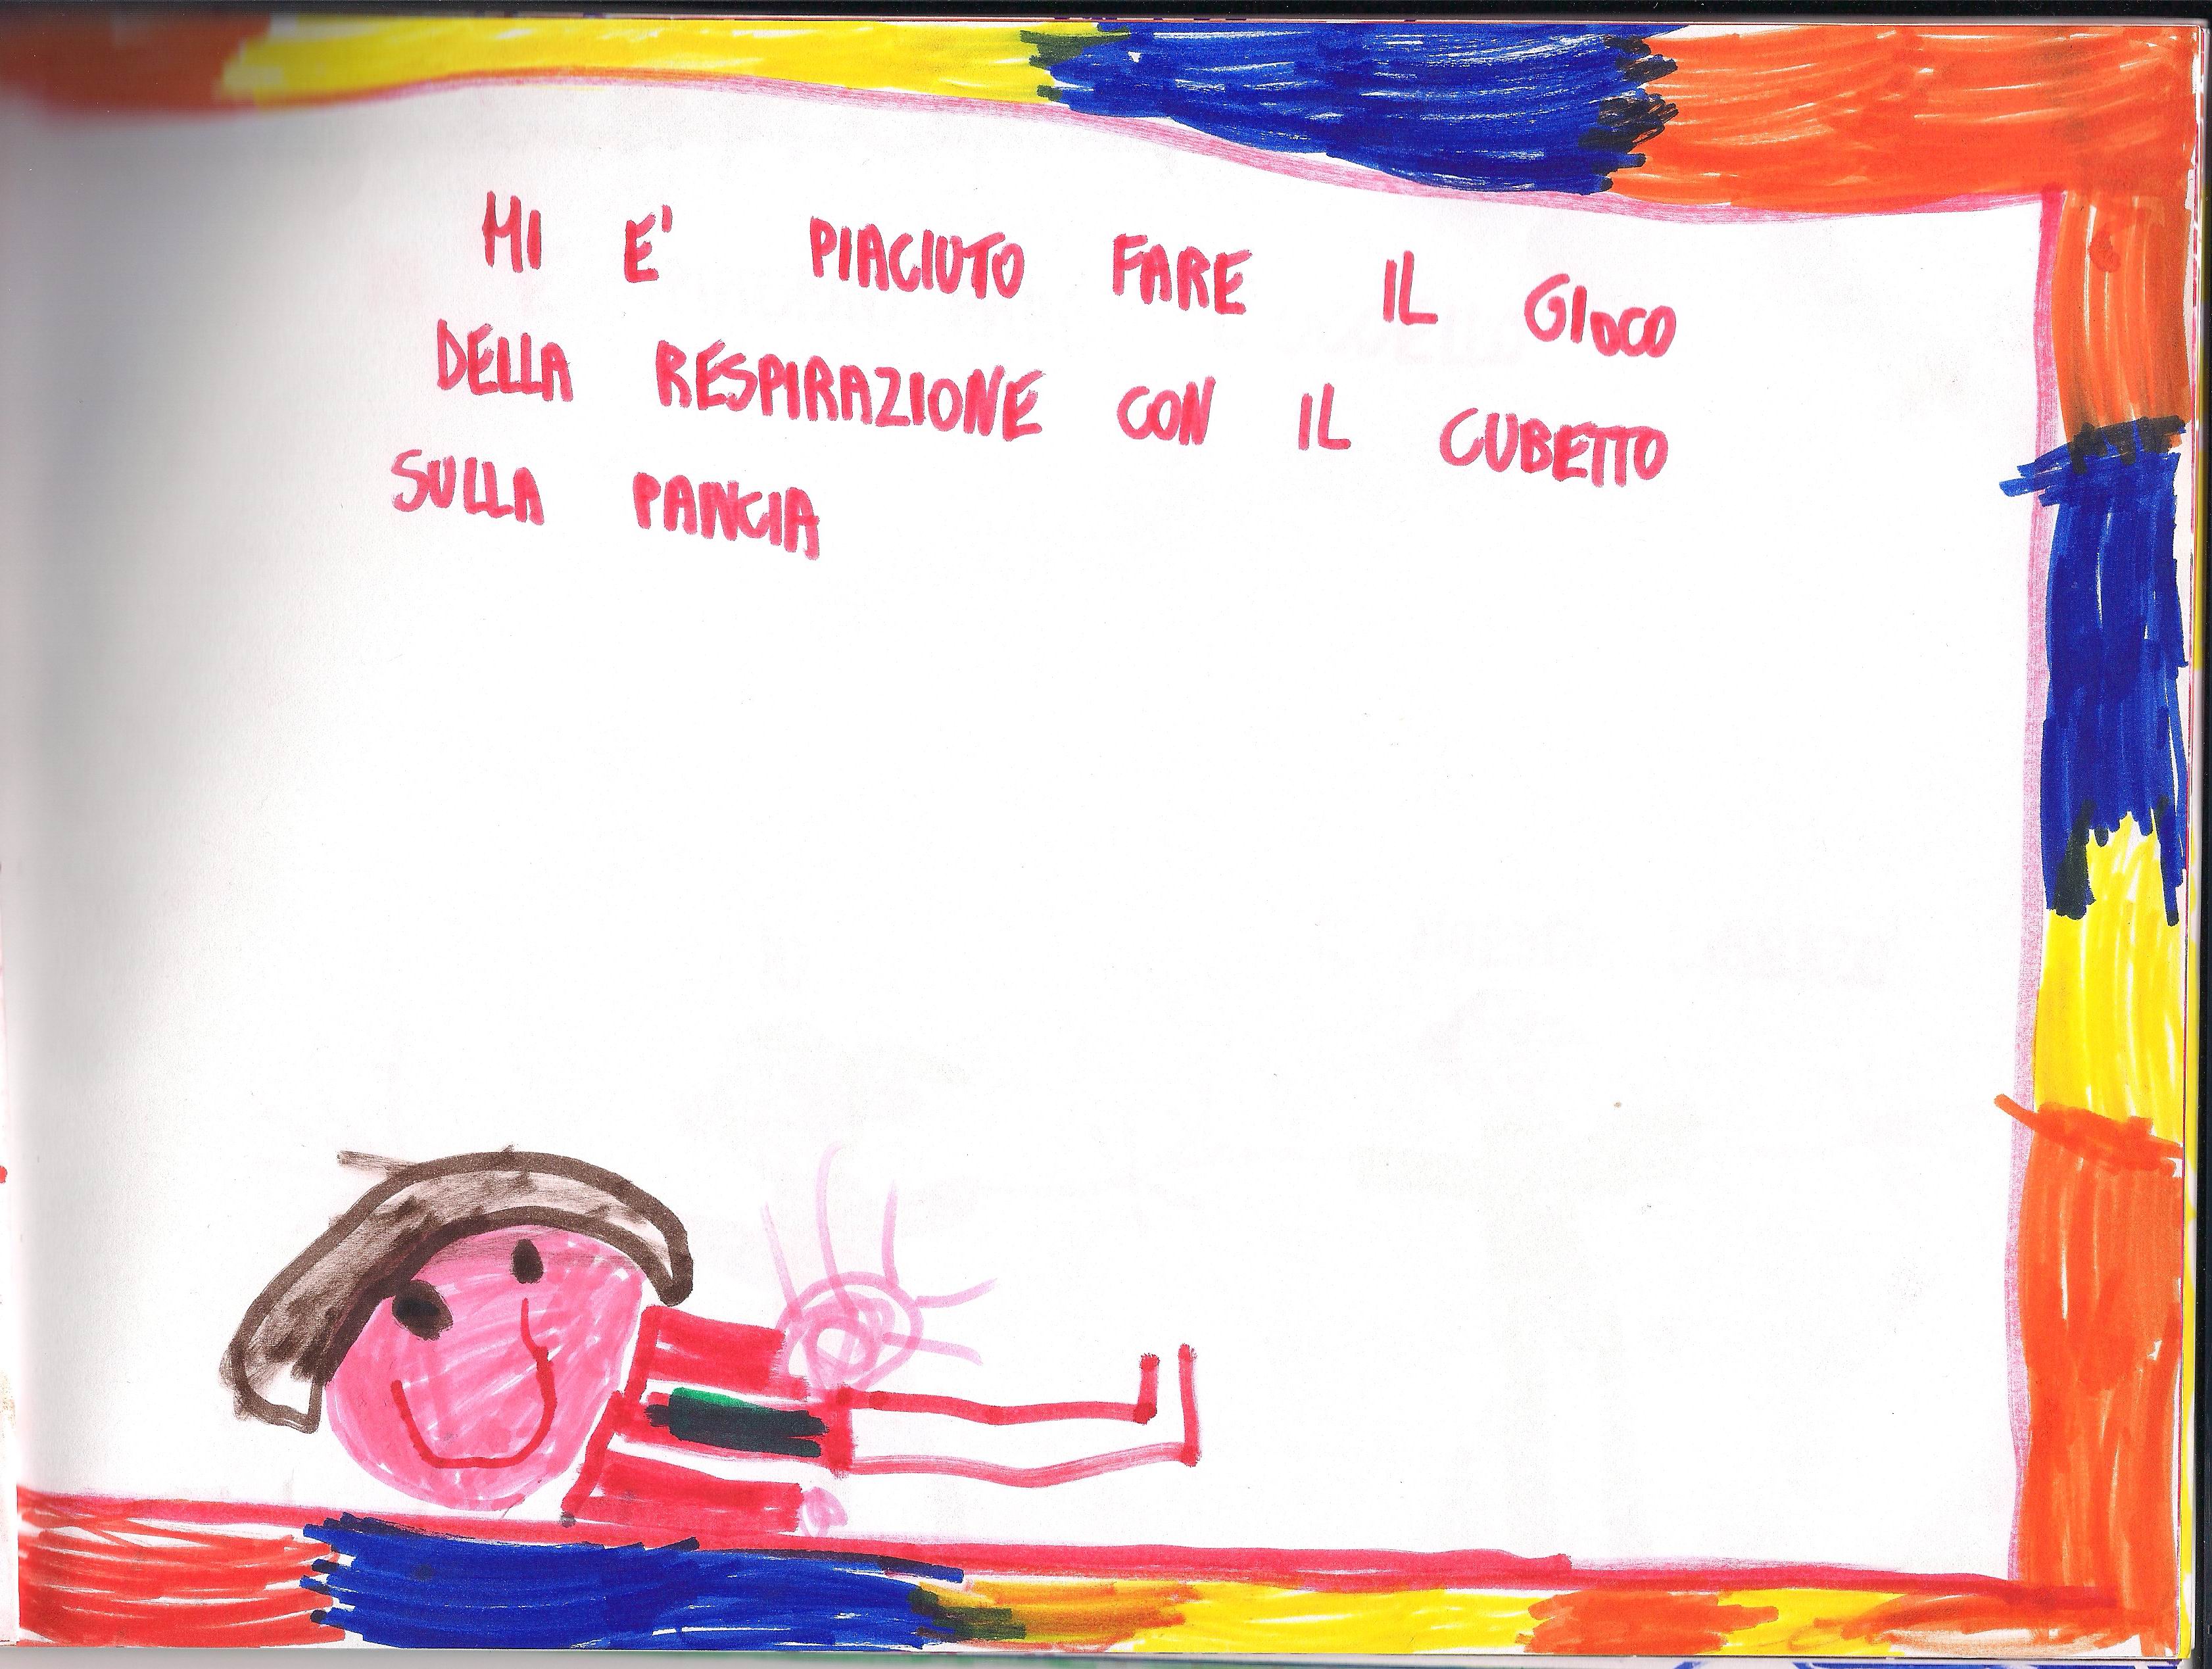 MI E' PIACIUTO FARE IL GIOCO
DELLA RESPIRAZIONE CON IL CUBETTO
SULLA PANCIA